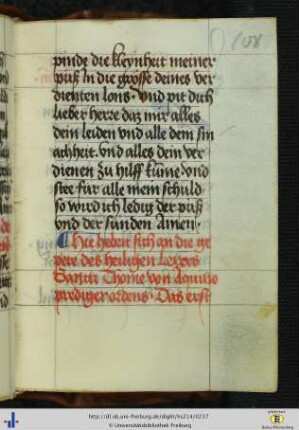 158
pinde die kleynheit meiner
puß in die grosse deines ver
dienten lons. Vnd pit dich
lieber herre daz mir alles
dein leiden vnd alle dein sm
acheit. vnd alles dein ver
dienen zu hilff kume vnd
stee für alle mein schuld
so wird ich ledig der puß
vnd der sunden Amen.
Hie heben sich an die ge
pete des heiligen
Sancti Thome von Aquino
prediger ordens. Das erst
http://dl.ub.uni-freiburg.de/diglit/hs214/0217
© Universitätsbibliothek Freiburg